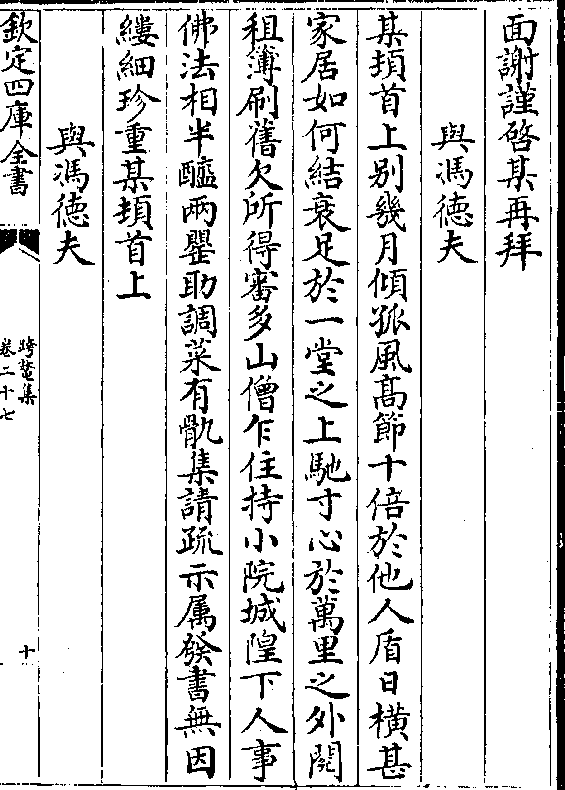 面謝謹啓某再拜
與馮德夫
某頓首上别幾月傾孤風髙節十倍於他人盾日横甚
家居如何結衰足於一堂之上馳寸心於萬里之外閱
租簿刷舊欠所得審多山僧乍住持小院城隍下人事
佛法相半醯兩甖助調菜有骩集請疏示属發書無因
縷細珍重某頓首上
與馮德夫
欽定四庫全書
跨鼇集
卷二十七
十